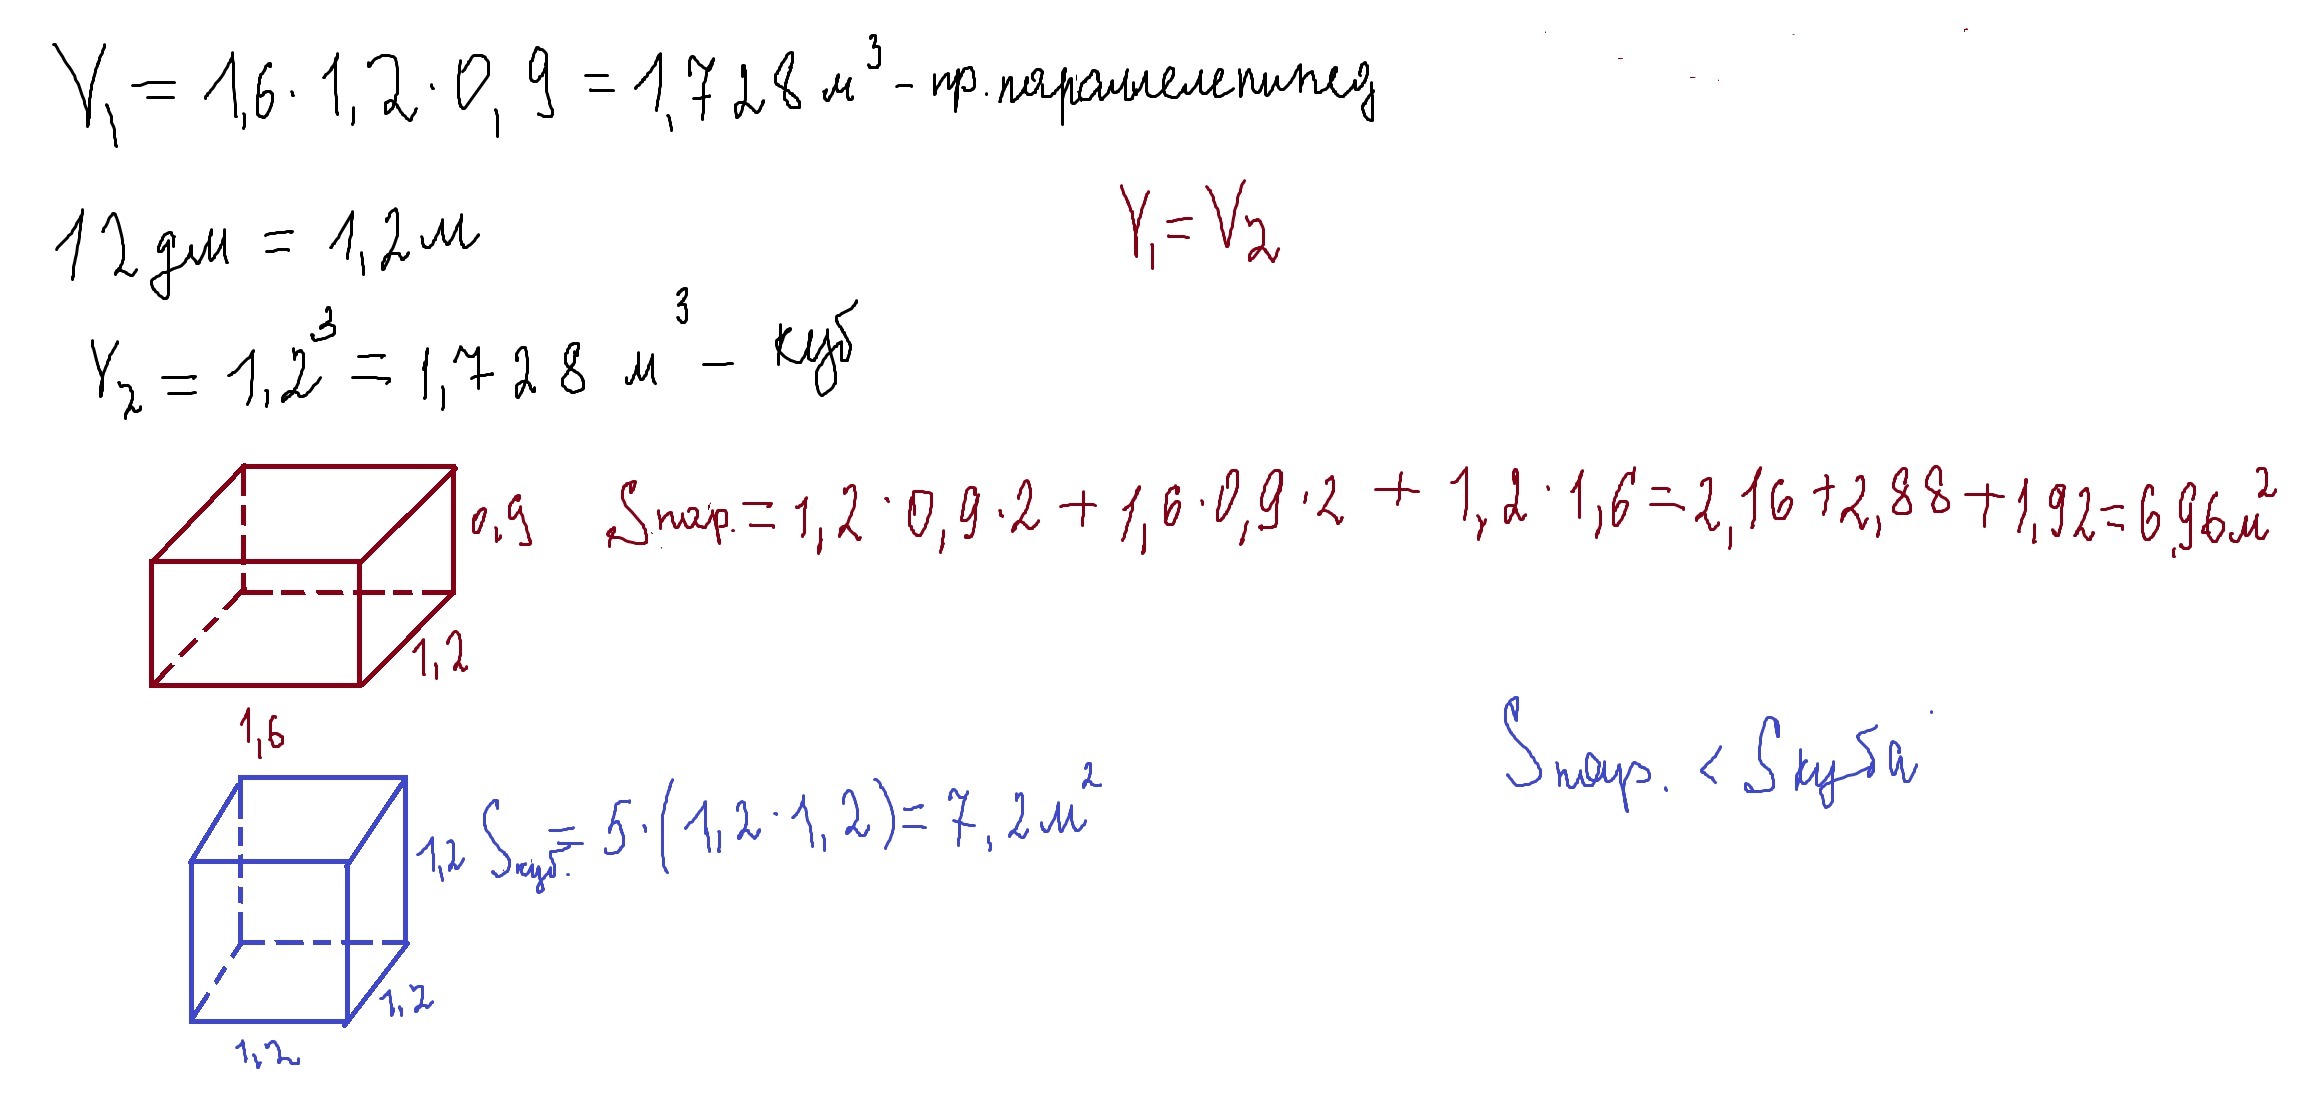 V₁ = 1,6 · 1,2 · 0,9 = 1,728 м³ - пр. параллелепипед
12 дм = 1,2 м
V₁ = V₂
V₂ = 1,2³ = 1,728 м³ - куб
0,9
Sпар. = 1,2 · 0,9 · 2 + 1,6 · 0,9 · 2 + 1,2 · 1,6 = 2,16 + 2,88 + 1,92 = 6,96 м²
1,2
1,6
Sпар. < Sкуба
1,2
Sкуб. = 5 · (1,2 · 1,2) = 7,2 м²
1,2
1,2